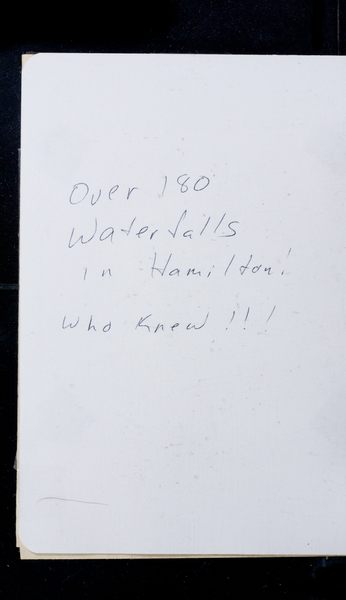 Over 180
Waterfalls
in Hamilton!
Who Knew !!!